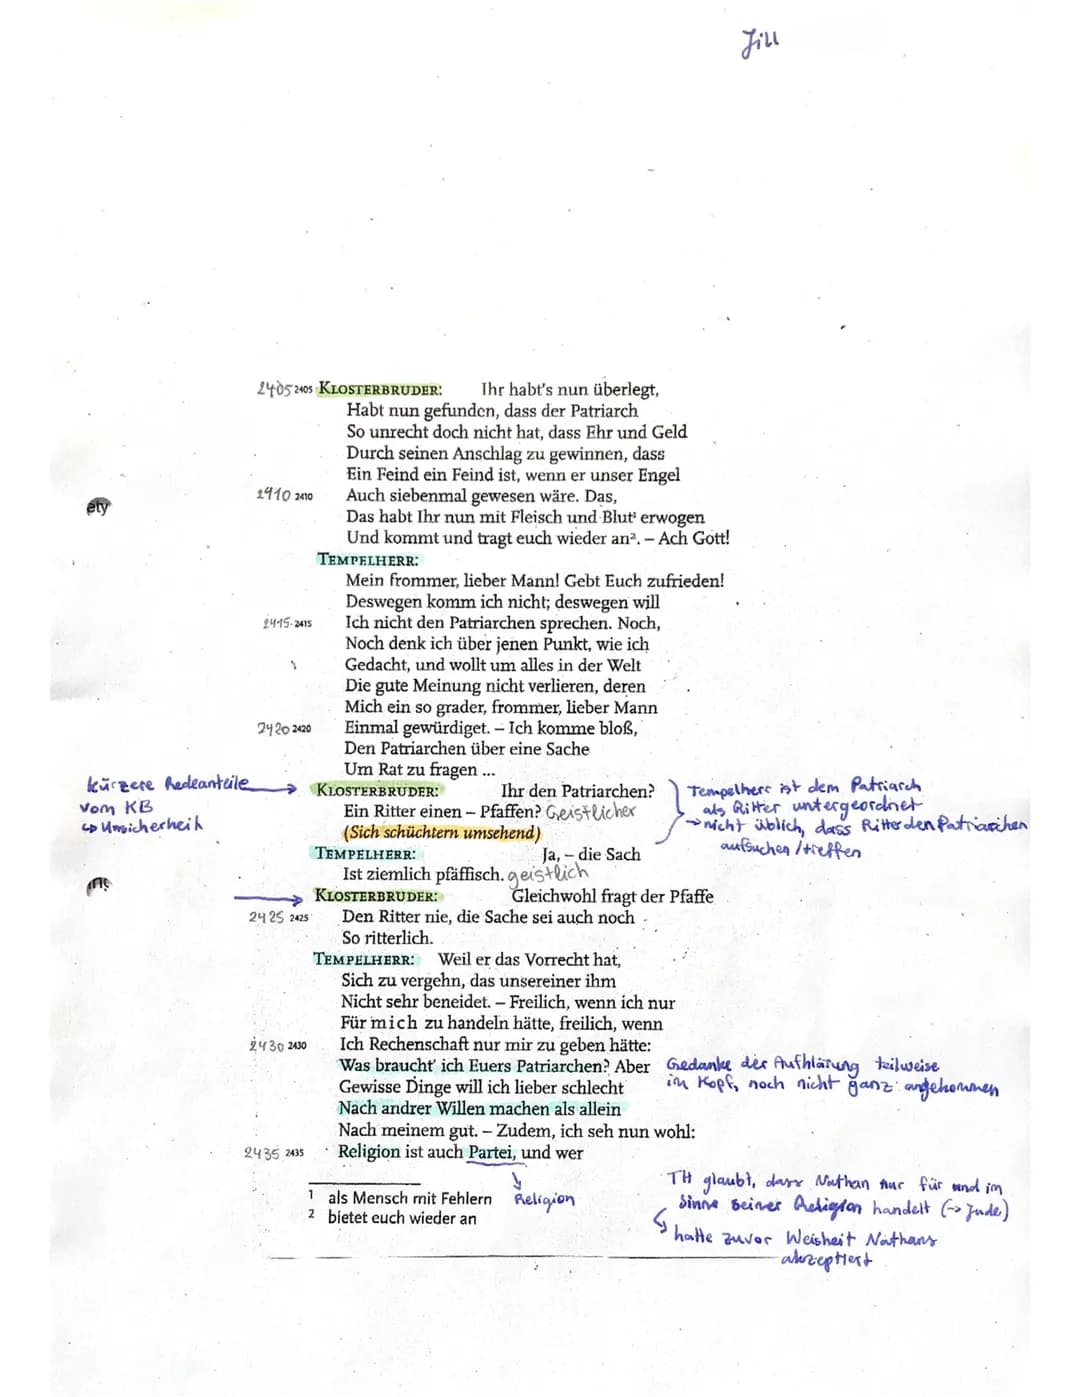 Jill
2405 2405 KLOSTERBRUDER: Ihr habt's nun überlegt,
Habt nun gefunden, dass der Patriarch
So unrecht doch nicht hat, dass Ehr und Geld
Durch seinen Anschlag zu gewinnen, dass
Ein Feind ein Feind ist, wenn er unser Engel
2410 2410 Auch siebenmal gewesen wäre. Das,
ety
Das habt Ihr nun mit Fleisch und Blut¹ erwogen
Und kommt und tragt euch wieder an². – Ach Gott!
TEMPELHERR:
Mein frommer, lieber Mann! Gebt Euch zufrieden!
Deswegen komm ich nicht; deswegen will
2415 2415 Ich nicht den Patriarchen sprechen. Noch,
Noch denk ich über jenen Punkt, wie ich
Gedacht, und wollt um alles in der Welt
Die gute Meinung nicht verlieren, deren
Mich ein so grader, frommer, lieber Mann
2420 2420 Einmal gewürdiget. – Ich komme bloß,
Den Patriarchen über eine Sache
Um Rat zu fragen ...
kürzere Redeanteile
vom KB
↳ Unsicherheih
KLOSTERBRUDER: Ihr den Patriarchen?
Ein Ritter einen – Pfaffen? Geistlicher
(Sich schüchtern umsehend)
Tempelherr ist dem Patriarch
als Ritter untergeordnet
→ nicht üblich, dass Ritter den Patriarchen
aufsuchen / treffen
TEMPELHERR: Ja, – die Sach
Ist ziemlich pfäffisch. geistlich
KLOSTERBRUDER: Gleichwohl fragt der Pfaffe
2425 2425 Den Ritter nie, die Sache sei auch noch
So ritterlich.
TEMPELHERR: Weil er das Vorrecht hat,
Sich zu vergehn, das unsereiner ihm
Nicht sehr beneidet. – Freilich, wenn ich nur
Für mich zu handeln hätte, freilich, wenn
2430 2430 Ich Rechenschaft nur mir zu geben hätte:
Was braucht' ich Euers Patriarchen? Aber
Gewisse Dinge will ich lieber schlecht
Gedanke der Aufklärung teilweise
im Kopf, noch nicht ganz angekommen
Nach andrer Willen machen als allein
Nach meinem gut. – Zudem, ich seh nun wohl:
2435 2435 Religion ist auch Partei, und wer
Religion
TH glaubt, dass Nathan nur für und im
Sinne seiner Religion handelt (→ Jude)
↳ hatte zuvor Weisheit Nathans
akzeptiert
1 als Mensch mit Fehlern
2 bietet euch wieder an